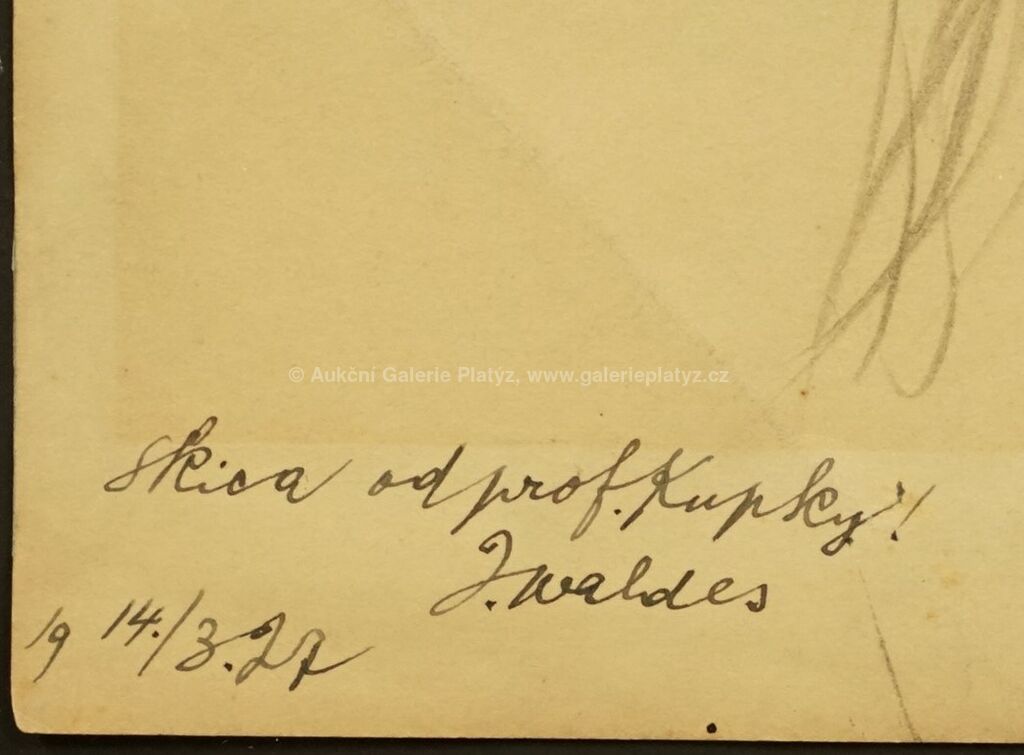 © Aukční Galerie Platýz, www.galerieplatyz.cz
skica od prof. Kupky!
J. Waldes
19 14./3. 27